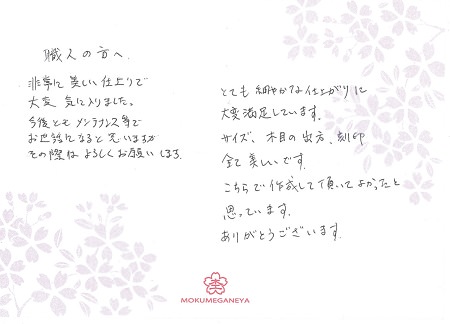 職人の方へ
非常に美しい仕上りで
大変気に入りました。
今後ともメンテナンス等で
お世話になると思いますが
その際はよろしくお願いします。
とても細やかな仕上がりに
大変満足しています。
サイズ、木目の出方、刻印
全て美しいです。
こちらで作成して頂いてよかったと
思っています。
ありがとうございます。
MOKUMEGANEYA